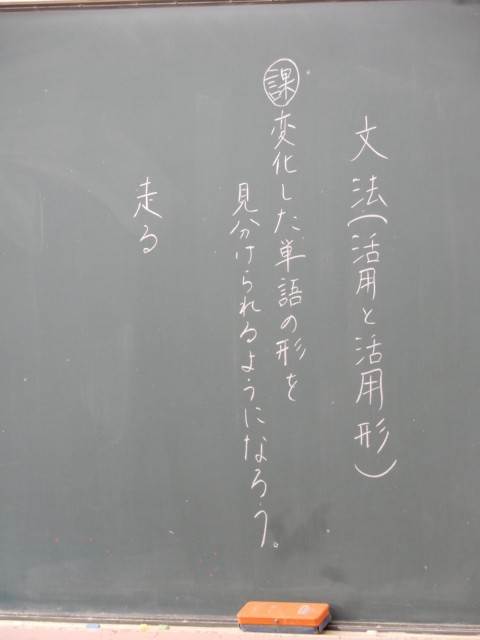 文法(活用と活用形)
課変化した単語の形を
見分けられるようになろう。
走る